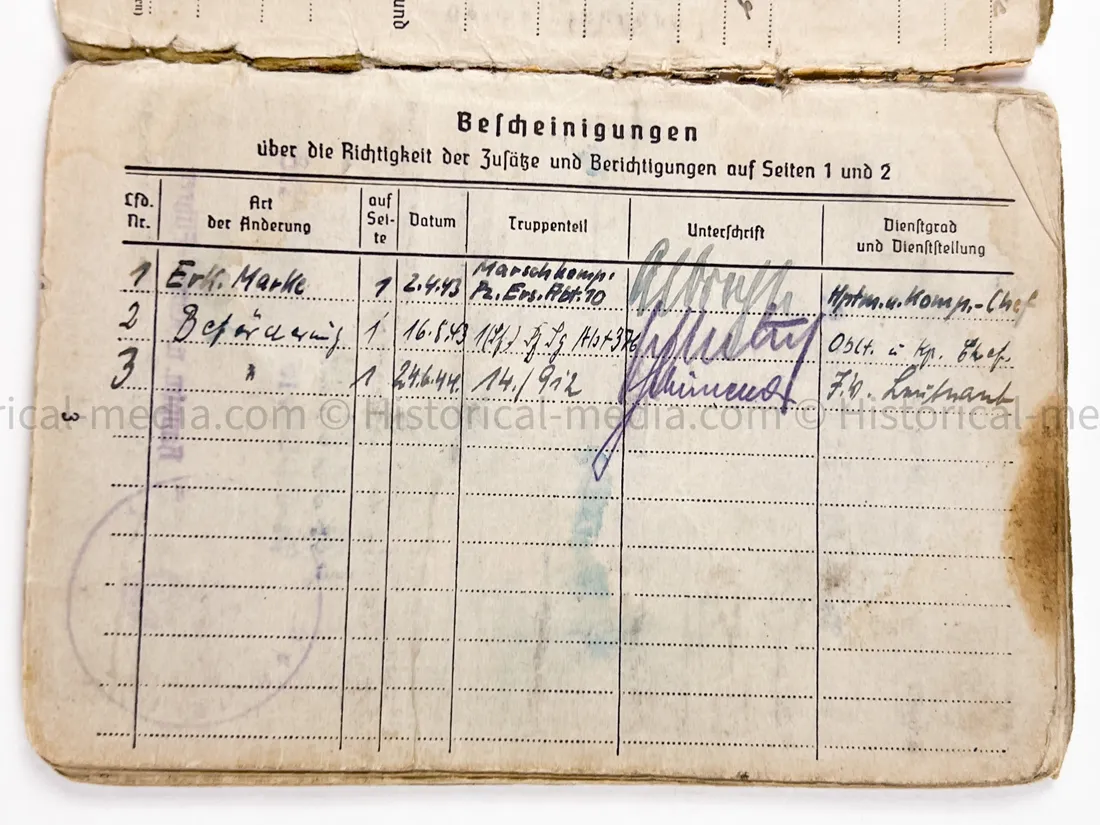 und
Bescheinigungen
über die Richtigkeit der Zusätze und Berichtigungen auf Seiten 1 und 2
Lfd. Nr. Art der Änderung auf Sei- te Datum Truppenteil Unterschrift Dienstgrad und Dienststellung
1 Erk. Marke 1 2.4.43 Marschkomp. Pz. Ers. Abt. 10 Hptm. u. Komp.-Chef
2 Beförderung 1 16.8.43 Oblt. u. Kp. Chef.
3 " 1 24.6.44. 14./912 Leutnant
3
© Historical-media.com © Historical-media.com